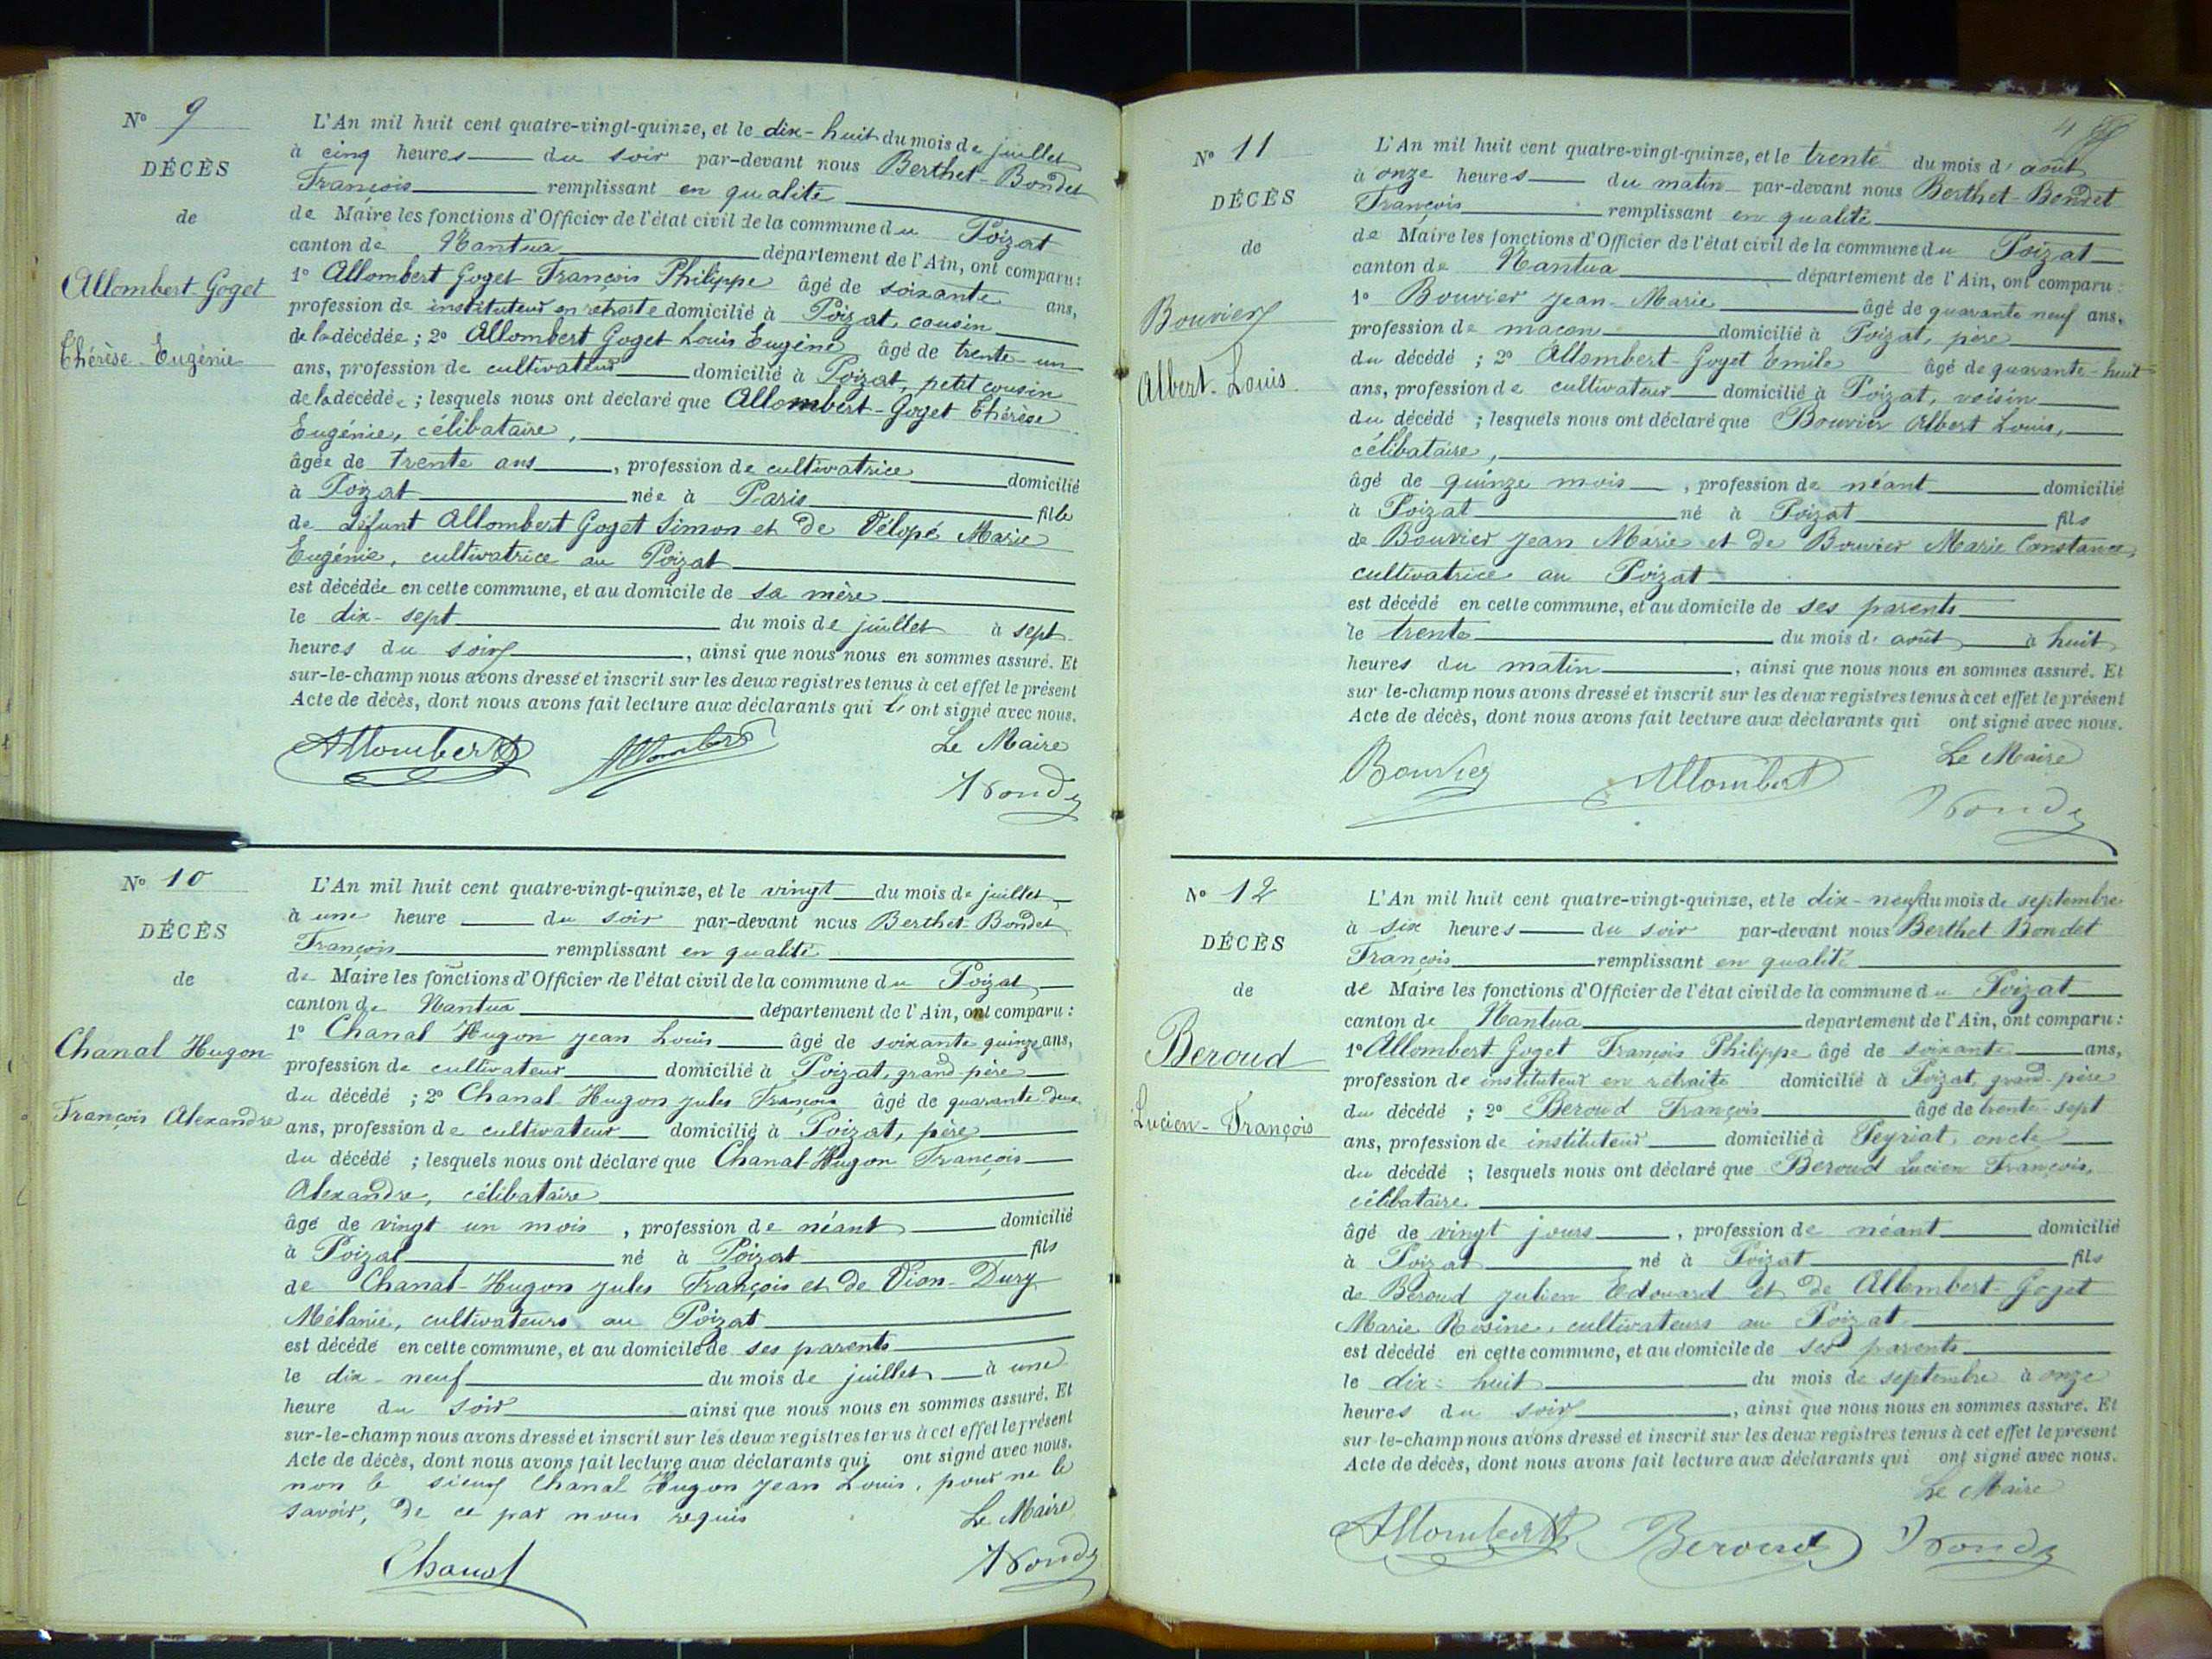 N° 9
DÉCÈS
de
Allombert-Goget
Thérèse-Eugénie
L'An mil huit cent quatre-vingt-quinze, et le dix-huit du mois de juillet
à cinq heures du soir par-devant nous Berthet-Bondet
François remplissant en qualité
de Maire les fonctions d'Officier de l'état civil de la commune du Poizat
canton de Nantua département de l'Ain, ont comparu:
1° Allombert Goget François Philippe âgé de soixante ans,
profession de instituteur en retraite domicilié à Poizat, cousin
de la décédée; 2° Allombert Goget Louis Eugène âgé de trente-un
ans, profession de cultivateur domicilié à Poizat, petit cousin
de la décédée; lesquels nous ont déclaré que Allombert-Goget Thérèse
Eugénie, célibataire,
âgée de trente ans, profession de cultivatrice domicilié
à Poizat née à Paris fille
de défunt Allombert Goget Simon et de Vélopé Marie
Eugénie, cultivatrice au Poizat
est décédée en cette commune, et au domicile de sa mère
le dix-sept du mois de juillet à sept
heures du soir, ainsi que nous nous en sommes assuré. Et
sur-le-champ nous avons dressé et inscrit sur les deux registres tenus à cet effet le présent
Acte de décès, dont nous avons fait lecture aux déclarants qui ont signé avec nous.
Le Maire
Allombert Allombert
N° 10
DÉCÈS
de
Chanal Hugon
François Alexandre
L'An mil huit cent quatre-vingt-quinze, et le vingt du mois de juillet
à une heure du soir par-devant nous Berthet-Bondet
François remplissant en qualité
de Maire les fonctions d'Officier de l'état civil de la commune du Poizat
canton de Nantua département de l'Ain, ont comparu:
1° Chanal Hugon Jean Louis âgé de soixante quinze ans,
profession de cultivateur domicilié à Poizat, grand-père
du décédé; 2° Chanal-Hugon Jules François âgé de quarante-deux
ans, profession de cultivateur domicilié à Poizat, père
du décédé; lesquels nous ont déclaré que Chanal-Hugon François
Alexandre, célibataire
âgé de vingt un mois, profession de néant domicilié
à Poizat né à Poizat fils
de Chanal-Hugon Jules François et de Vion-Dury
Mélanie, cultivateurs au Poizat
est décédé en cette commune, et au domicile de ses parents
le dix-neuf du mois de juillet à une
heure du soir ainsi que nous nous en sommes assuré. Et
sur-le-champ nous avons dressé et inscrit sur les deux registres tenus à cet effet le présent
Acte de décès, dont nous avons fait lecture aux déclarants qui ont signé avec nous.
non le sieur Chanal Hugon Jean Louis, pour ne le
savoir, de ce par nous requis
Le Maire
Chanal
N° 11
DÉCÈS
de
Bouvier
Albert-Louis
L'An mil huit cent quatre-vingt-quinze, et le trente du mois d'août
à onze heures du matin par-devant nous Berthet-Bondet
François remplissant en qualité
de Maire les fonctions d'Officier de l'état civil de la commune du Poizat
canton de Nantua département de l'Ain, ont comparu:
1° Bouvier Jean-Marie âgé de quarante neuf ans,
profession de maçon domicilié à Poizat, père
du décédé; 2° Allombert-Goget Emile âgé de quarante-huit
ans, profession de cultivateur domicilié à Poizat, voisin
du décédé; lesquels nous ont déclaré que Bouvier Albert Louis,
célibataire,
âgé de quinze mois, profession de néant domicilié
à Poizat né à Poizat fils
de Bouvier Jean Marie et de Bouvier Marie Constance,
cultivatrice au Poizat
est décédé en cette commune, et au domicile de ses parents
le trente du mois d'août à huit
heures du matin, ainsi que nous nous en sommes assuré. Et
sur-le-champ nous avons dressé et inscrit sur les deux registres tenus à cet effet le présent
Acte de décès, dont nous avons fait lecture aux déclarants qui ont signé avec nous.
Le Maire
Bouvier Allombert
N° 12
DÉCÈS
de
Beroud
Lucien-François
L'An mil huit cent quatre-vingt-quinze, et le dix-neuf du mois de septembre
à six heures du soir par-devant nous Berthet Bondet
François remplissant en qualité
de Maire les fonctions d'Officier de l'état civil de la commune du Poizat
canton de Nantua département de l'Ain, ont comparu:
1° Allombert Goget François Philippe âgé de soixante ans,
profession de instituteur en retraite domicilié à Poizat, grand-père
du décédé; 2° Beroud François âgé de trente-sept
ans, profession de instituteur domicilié à Peyriat, oncle
du décédé; lesquels nous ont déclaré que Beroud Lucien François,
célibataire
âgé de vingt jours, profession de néant domicilié
à Poizat né à Poizat fils
de Beroud Julien Edouard et de Allombert-Goget
Marie Rosine, cultivateurs au Poizat
est décédé en cette commune, et au domicile de ses parents
le dix-huit du mois de septembre à onze
heures du soir, ainsi que nous nous en sommes assuré. Et
sur-le-champ nous avons dressé et inscrit sur les deux registres tenus à cet effet le présent
Acte de décès, dont nous avons fait lecture aux déclarants qui ont signé avec nous.
Le Maire
Allombert Beroud